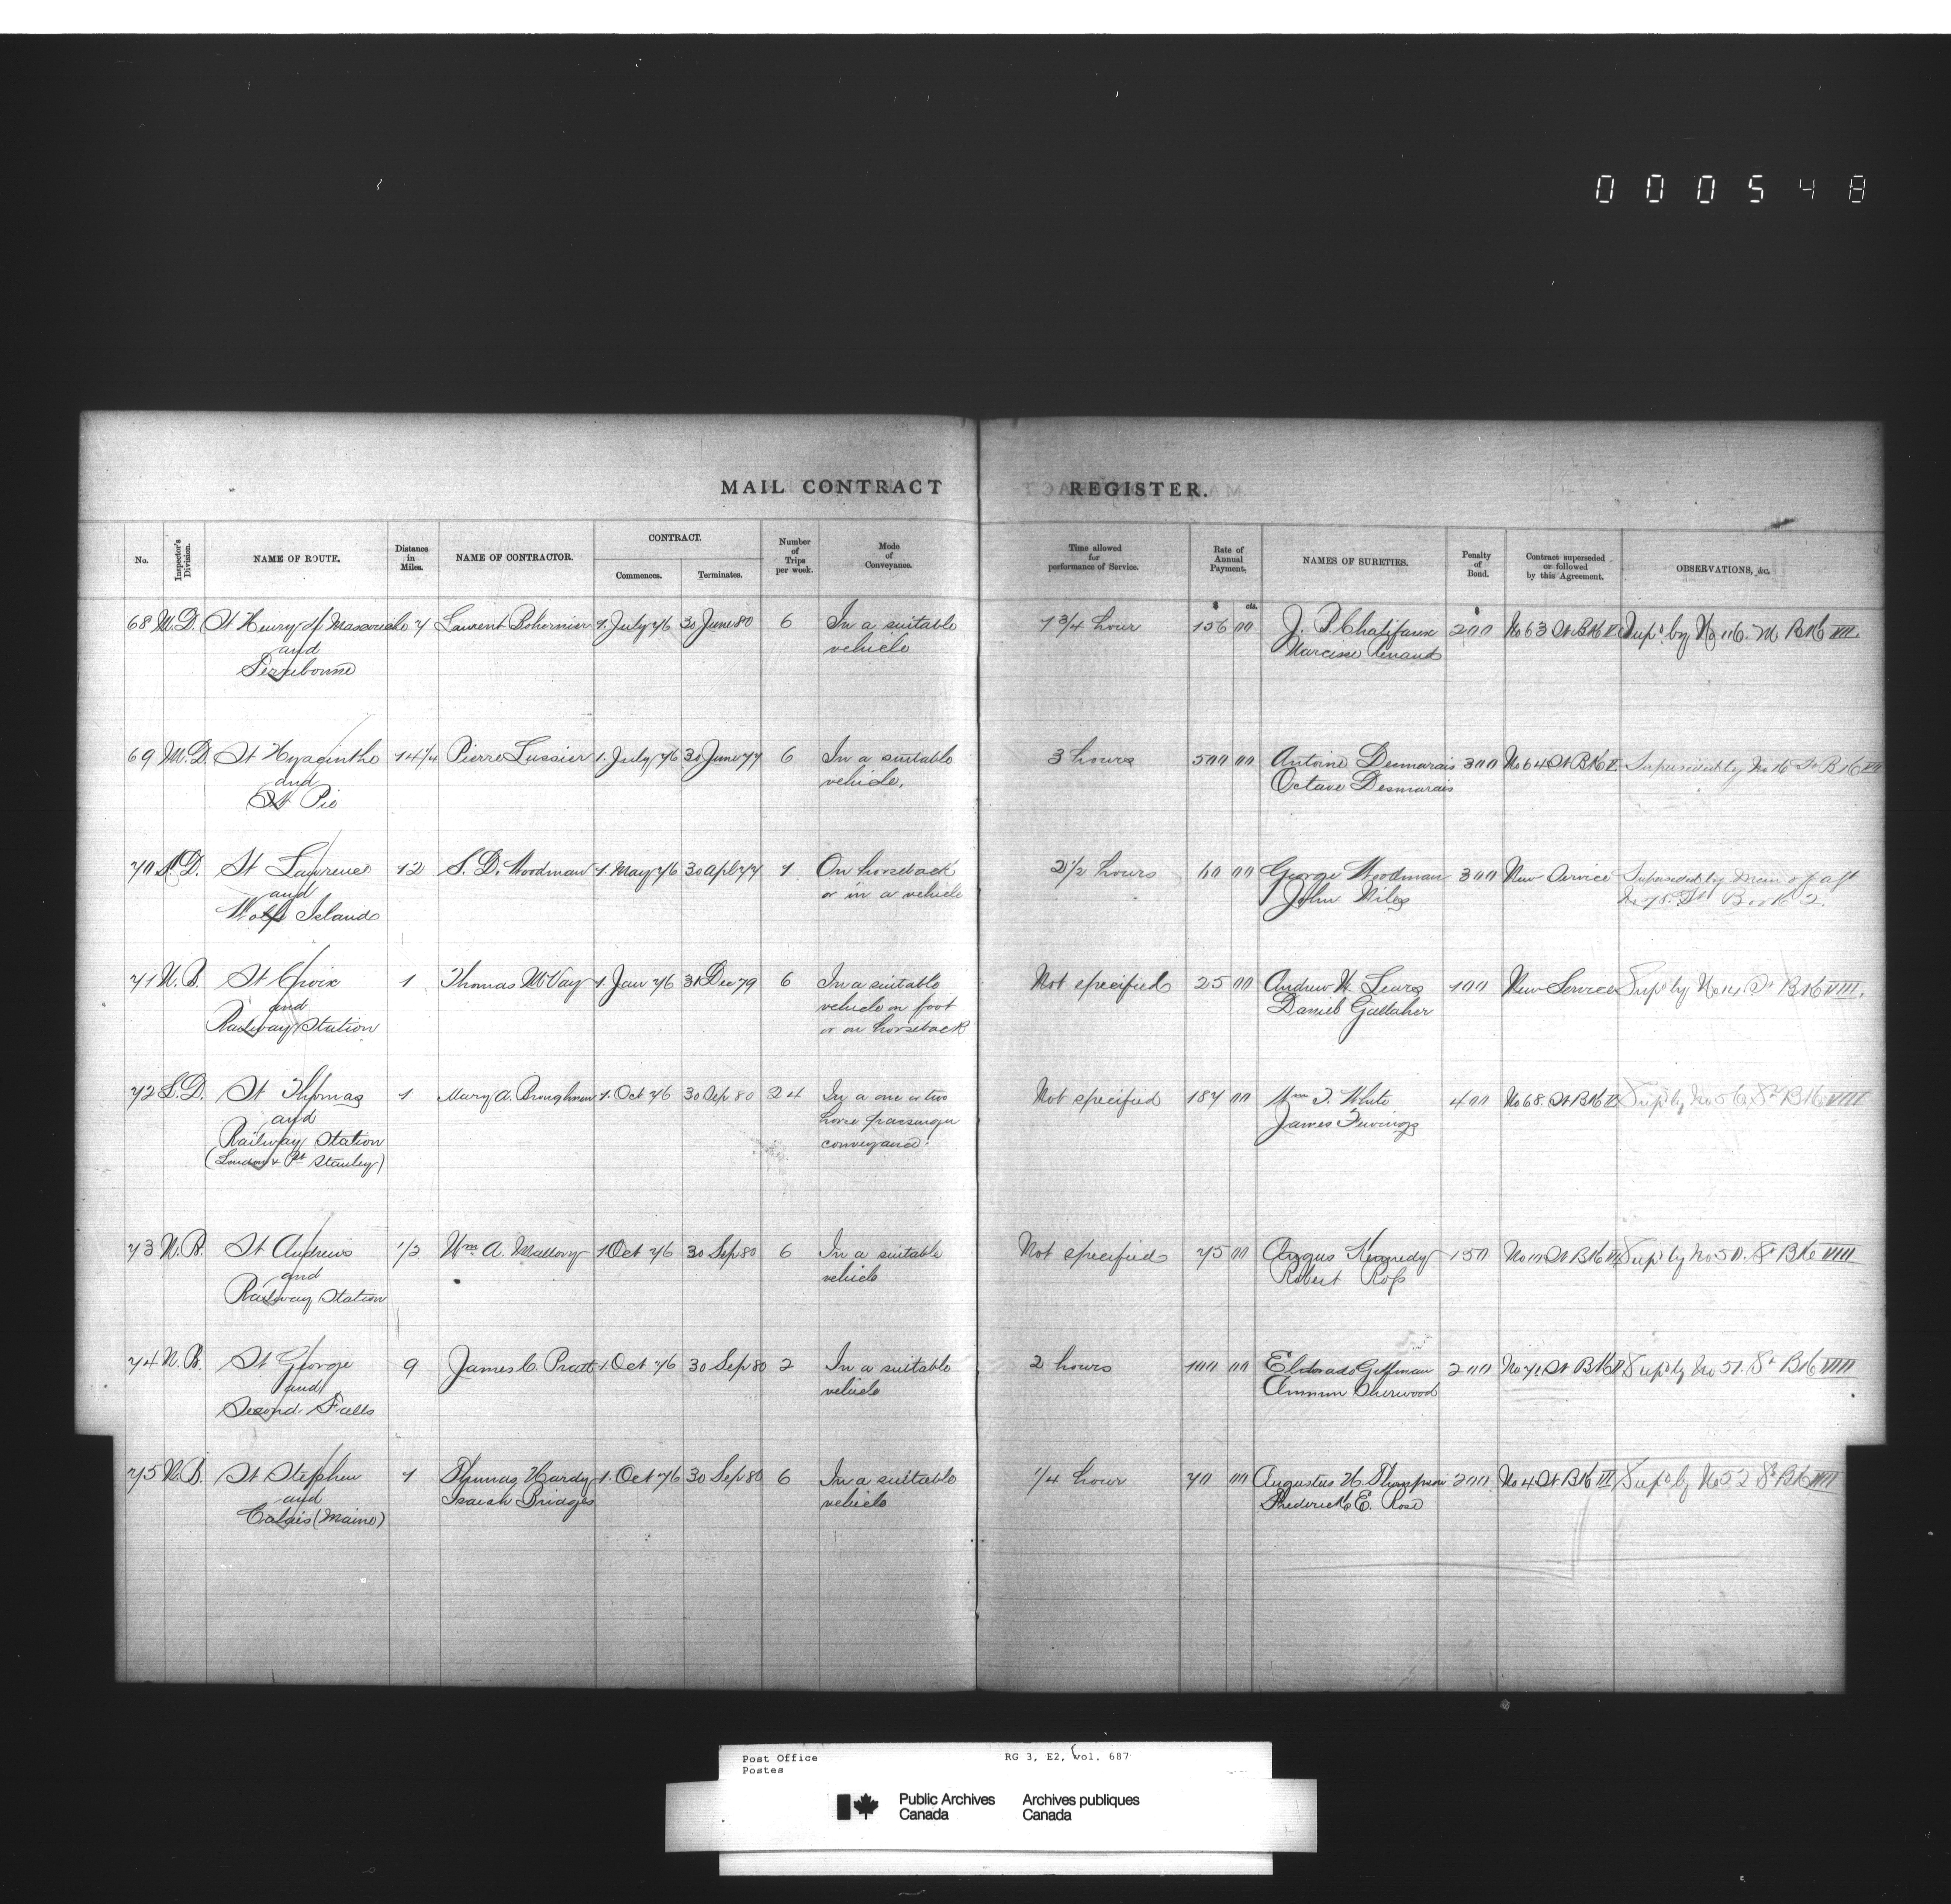 000548
MAIL CONTRACT REGISTER.
No. Inspector's Division. NAME OF ROUTE. Distance in Miles. NAME OF CONTRACTOR. CONTRACT. Commences. Terminates. Number of Trips per week. Mode of Conveyance. Time allowed for performance of Service. Rate of Annual Payment. NAMES OF SURETIES. Penalty of Bond. Contract superseded or followed by this Agreement. OBSERVATIONS, &c.
$ cts. $
68 M.D. St Henry of Mascouche 7 Laurent Bohemier 1. July 76 30 June 80 6 In a suitable 1 3/4 hour 156 00 J. P. Chalifaux 200 No 63 St. Bk V. Sup'd by No 116. M Bk VII.
and vehicle Narcisse Renaud
Terrebonne
69 M.D. St Hyacinthe 14 1/4 Pierre Lussier 1. July 76 30 June 77 6 In a suitable 3 hours 500 00 Antoine Desmarais 300 No 64 St Bk V. Superseded by No 16 St Bk VII
and vehicle. Octave Desmarais
St Pie
70 D. St Lawrence 12 S. D. Woodman 1. May 76 30 Apl 77 1 On horseback 2 1/2 hours 60 00 George Woodman 300 New Service Superseded by Mem of agt
and or in a vehicle John Niles No 75. St Book 2.
Wolfe Island
71 N.B. St Croix 1 Thomas McVay 1. Jan 76 31 Dec 79 6 In a suitable Not specified 25 00 Andrew W. Lears 100 New Service Sup'd by No 14 St Bk VIII.
and vehicle on foot Daniel Gallaher
Railway Station or on horseback
72 L.D. St Thomas 1 Mary A. Broughman 1. Oct 76 30 Sep 80 24 In a one or two Not specified 187 00 Wm T. White 400 No 68. St Bk V Sup'd by No 56, St Bk VIII
and horse passenger James
Railway Station conveyance.
(London & Pt Stanley)
73 N.B. St Andrews 1/2 Wm A. Mallory 1 Oct 76 30 Sep 80 6 In a suitable Not specified 75 00 Angus Kennedy 150 St Bk Sup'd by No 50. St Bk VIII
and vehicle Robert Ross
Railway Station
74 N.B. St George 9 James C. Pratt 1. Oct 76 30 Sep 80 2 In a suitable 2 hours 100 00 Eldorado Gillman 200 No 71 St Bk V Sup'd by No 51. St Bk VIII
and vehicle Sherwood
Second Falls
75 N.B. St Stephen 1 Thomas Hardy 1. Oct 76 30 Sep 80 6 In a suitable 1/4 hour 70 00 Augustus H. Thompson 200 No 4 St Bk III Sup'd by No 52 St Bk VIII
and Isaiah Bridges vehicle Frederick E. Rose
Calais (Maine)
Post Office RG 3, E2, vol. 687
Postes
Public Archives Archives publiques
Canada Canada